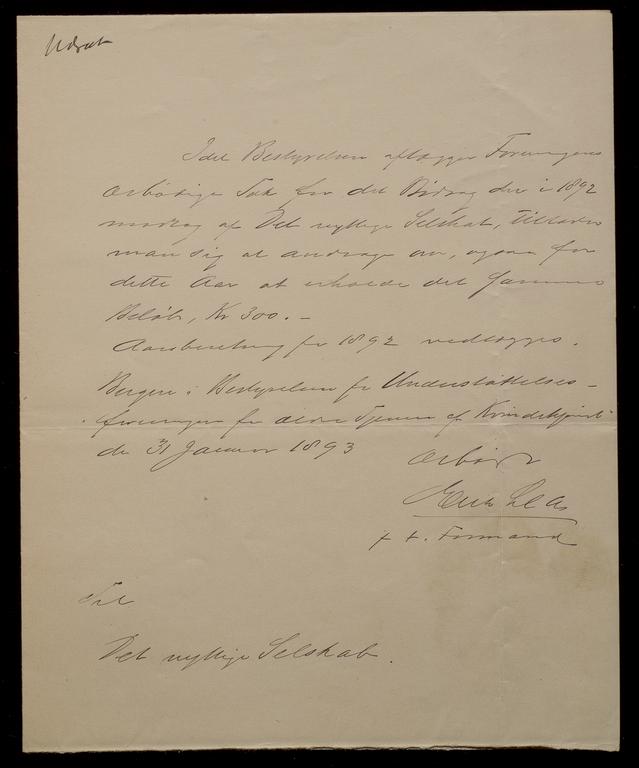 Idet Bestyrelsen aflægger Foreningens
ærbødige Tak for det Bidrag der i 1892
modtog af Det nyttige Selskab, tillader
man sig at andrage om, ogsaa for
dette Aar at erholde det samme
Beløb, Kr 300.-
Aarsberetning for 1892 vedlægges.
Bergen i Bestyrelsen for Understøttelses-
foreningen for ældre Tjenere af Kvindekjøn
d. 31 Januar 1893
Ærbødigst
f. t. Formand
Til
Det nyttige Selskab.